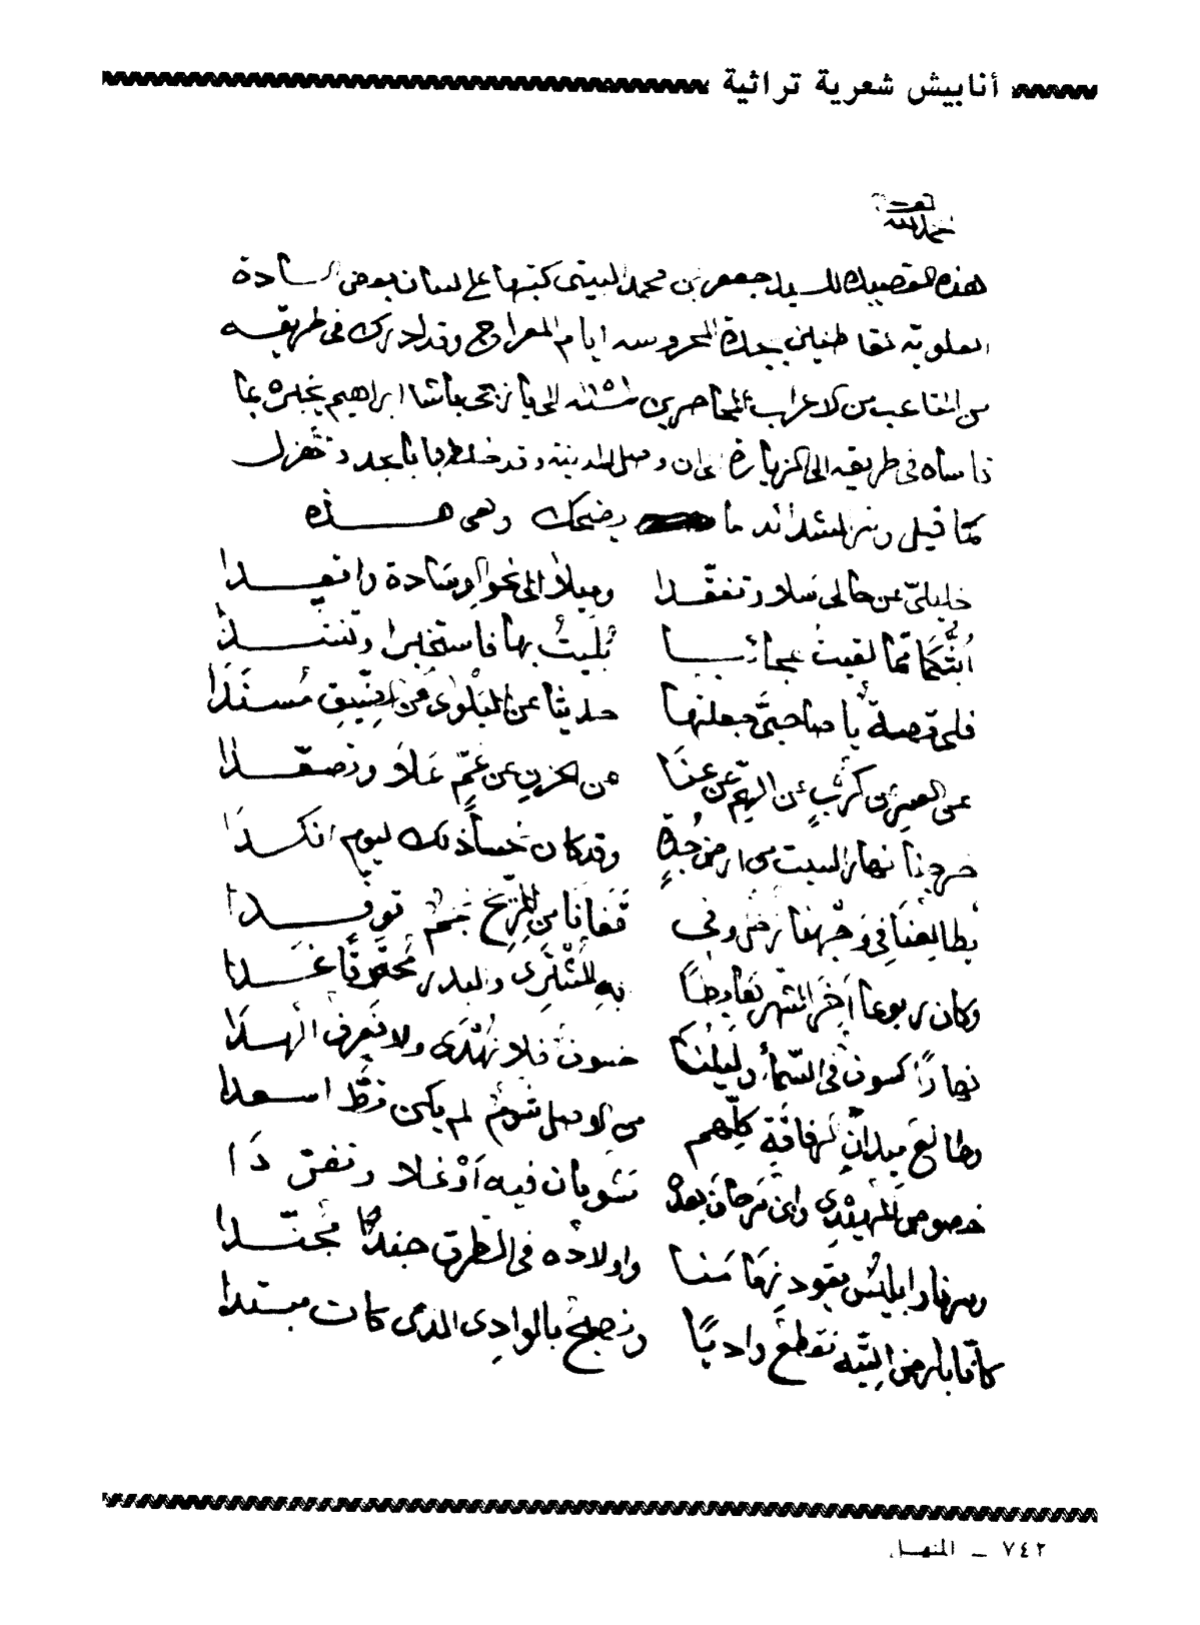 أنابيش شعرية تراثية
الحمد لله
هذه القصيدة للسيد جعفر بن محمد البيتي كتبها على لسان بعض السادة
العلوية القاطنين بجدة المحروسه ايام المعراج وقد ادرك في طريقه
من المتاعب من الاعراب المحاصرين الى باشا ابراهيم يخبره بما
قاساه في طريقه الى الزيارة الى ان وصل المدينة وقد خلطها بالجد والهزل
كما قيل وشر الشدائد ما يضحك وهي هذه
خليليّ عن حالي سلا وتفقّدا وميلا الى نحو الوسادة واقعدا
ابثّكما ممّا لقيتُ عجائبا بُليتُ بها فاستخبرا وتنشدا
فلي قصة يا صاحبيَّ جعلتها حديثا عن البلوى عن الضيق مُسندا
عن العسر عن كربٍ عن الهمّ عن عنا عن الحزن عن غمّ علا وتصعّدا
خرجنا نهار السبت من ارض جُدة وقد كان نحسا ذلك اليوم انكدا
يطالعنا في وجهنا زحل وفي قفانا من المرّيخ نجم توقّدا
وكان ربوعا آخر الشهر به المشتري والبدر محقوقا غدا
نهاراً كسوف في السّماء وليلنا خسوف فلا نُهدى ولا نعرف الهدا
وطالع ميدان الرفاقة كلّهم من الاصل شوم لم يكن قطّ اسعدا
خصوص المهيدي وابن مرجان بعده نسوبان فيه
وسرنا وابليسُ يقود زمامنا واولاده في الطرق جندا مجنّدا
كأنّا بارض التيه نقطع واديًا ونصبح بالوادي الذي كان مبتدا
٧٤٢ ــ المنهل